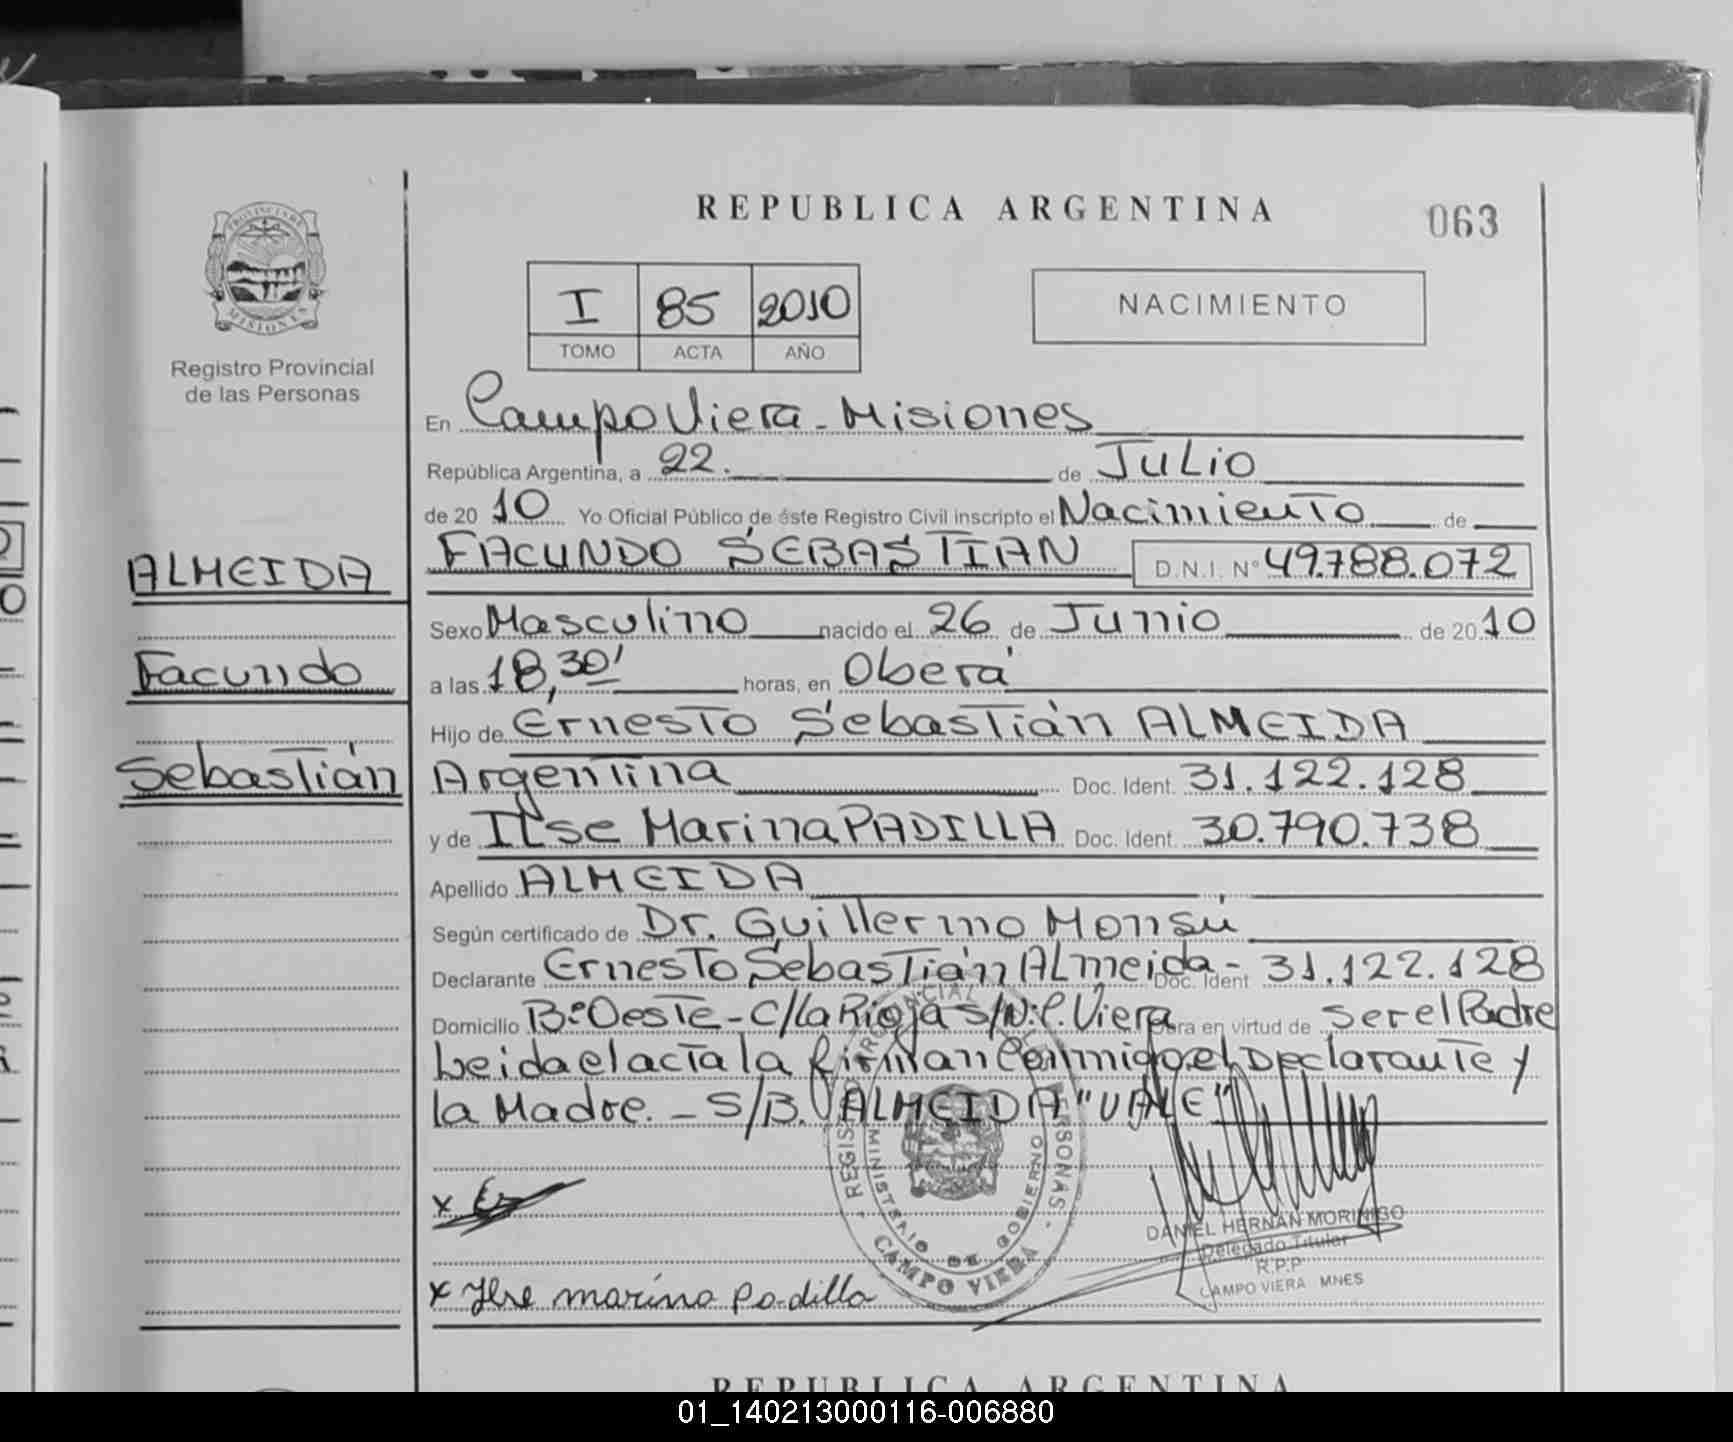 REPUBLICA ARGENTINA
063
PROVINCIA DE
MISIONES
Registro Provincial
de las Personas
I 85 2010
TOMO ACTA AÑO
NACIMIENTO
En Campo Viera - Misiones
República Argentina, a 22. de Julio
de 20 10 Yo Oficial Público de éste Registro Civil inscripto el Nacimiento de
FACUNDO SEBASTIAN D.N.I. N° 49.788.072
ALMEIDA
Facundo
Sebastián
Sexo Masculino nacido el 26 de Junio de 20 10
a las 18,30' horas, en Oberá
Hijo de Ernesto Sebastián ALMEIDA
Argentina Doc. Ident. 31.122.128
y de Ilse Marina PADILLA Doc. Ident. 30.790.738
Apellido ALMEIDA
Según certificado de Dr. Guillermo Monsú
Declarante Ernesto Sebastián Almeida - Doc. Ident 31.122.128
Domicilio B° Oeste - C/ La Rioja s/N: C. Viera Obra en virtud de ser el Padre
Leida el acta la firman conmigo el Declarante y
la Madre. - S/B. ALMEIDA "VALE"
REGISTRO PROVINCIAL DE LAS PERSONAS -
MINISTERIO DE GOBIERNO
CAMPO VIERA
x
DANIEL HERNAN MORINIGO
Delegado Titular
R.P.P
CAMPO VIERA MNES
x Ilse marina Padilla
REPUBLICA ARGENTINA
01_140213000116-006880